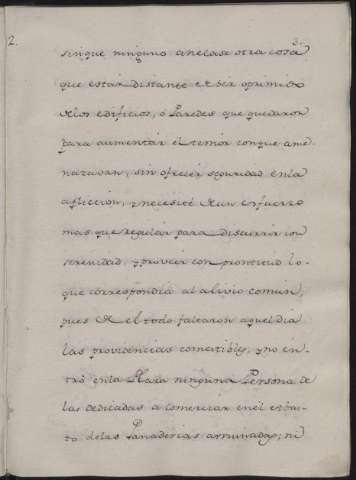 2.
3.
sin que ninguno anelase otra cosa
que estar distante de ser oprimido
de los edificios, o Paredes que quedaron
para aumentar el temor conque ame-
nazavan, sin ofrecer seguridad en la
afliccion, y necesité de un esfuerzo
mas que regular para discurrir con
serenidad, y proveer con prontitud lo
que correspondia al alivio comun,
pues de el todo faltaron aquel dia
las providencias comestibles, y no en-
tró en la Plaza ninguna Persona de
las dedicadas a comerciar en el
to de las Panaderias arruinadas, ni